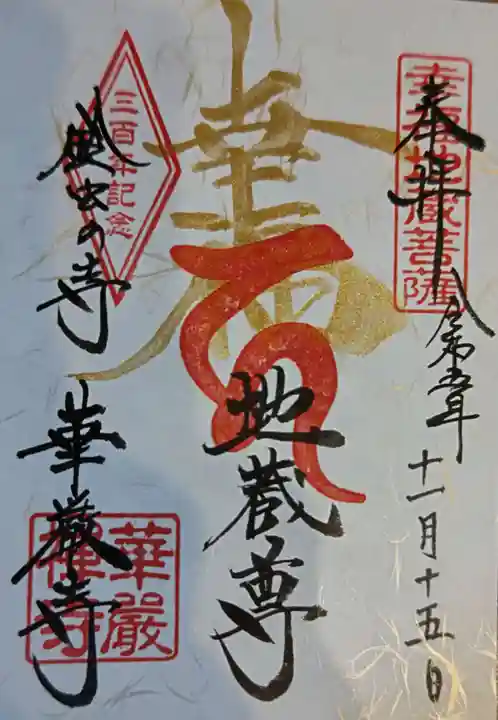 奉拝
令和五年
十一月十五日
幸福地蔵菩薩
幸福
地蔵尊
三百年記念
鈴虫の寺
華厳寺
華嚴禅寺